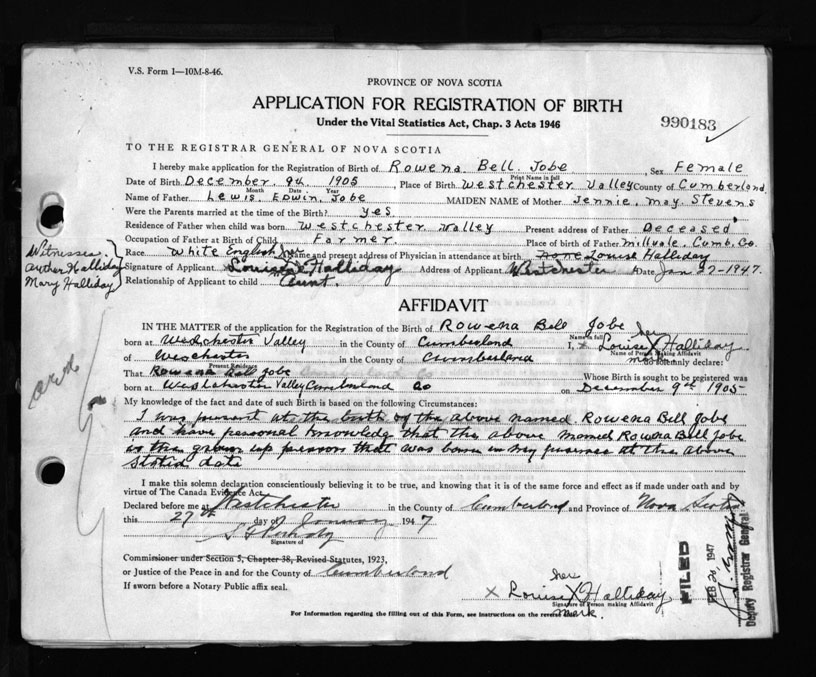 V.S. Form 1—10M-8-46.
PROVINCE OF NOVA SCOTIA
APPLICATION FOR REGISTRATION OF BIRTH
Under the Vital Statistics Act, Chap. 3 Acts 1946
990183
TO THE REGISTRAR GENERAL OF NOVA SCOTIA
I hereby make application for the Registration of Birth of Rowena Bell Jobe, Sex Female
Print Name in full
Date of Birth December 9th 1905, Place of Birth Westchester Valley County of Cumberland
Month Date Year
Name of Father Lewis Edwin Jobe MAIDEN NAME of Mother Jennie May Stevens
Were the Parents married at the time of the Birth? yes
Residence of Father when child was born Westchester Valley Present address of Father Deceased
Occupation of Father at Birth of Child Farmer. Place of birth of Father Millvale, Cumb. Co.
Race White English Name and present address of Physician in attendance at birth none Louise Halliday
Signature of Applicant Louise her X Halliday Address of Applicant Westchester Date Jan 27-1947.
Relationship of Applicant to child Aunt.
Witnesses
Arthur Halliday
Mary Halliday
AFFIDAVIT
IN THE MATTER of the application for the Registration of the Birth of Rowena Bell Jobe
Name in full
born at Westchester Valley in the County of Cumberland I, x Louise her X Halliday
Name of Person Making Affidavit
of Weschester in the County of Cumberland mark do solemnly declare:
Present Residence
That Rowena Bell Jobe Whose Birth is sought to be registered was
born at Westchester Valley Cumberland Co on December 9th 1905-
My knowledge of the fact and date of such Birth is based on the following Circumstances:
I was pursant at the birth of the above named Rowena Bell Jobe
and have personal knowledg that the above named Rowena Bell Jobe
is the grown up person that was born in my presnes at the above
stated date
I make this solemn declaration conscientiously believing it to be true, and knowing that it is of the same force and effect as if made under oath and by
virtue of The Canada Evidence Act.
Declared before me at Westchester in the County of Cumberland and Province of Nova Scotia
this 27th day of January 1947
Signature of
Commissioner under Section 5, Chapter 38, Revised Statutes, 1923,
or Justice of the Peace in and for the County of Cumberland
If sworn before a Notary Public affix seal.
x Louise her X Halliday
Signature of Person making Affidavit
mark.
For Information regarding the filling out of this Form, see instructions on the reverse side.
FILED
FEB 20 1947
Deputy Registrar General